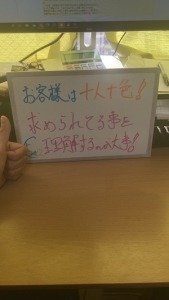 お客様は十人十色!!
求められてる事を
理解するのが大事!!